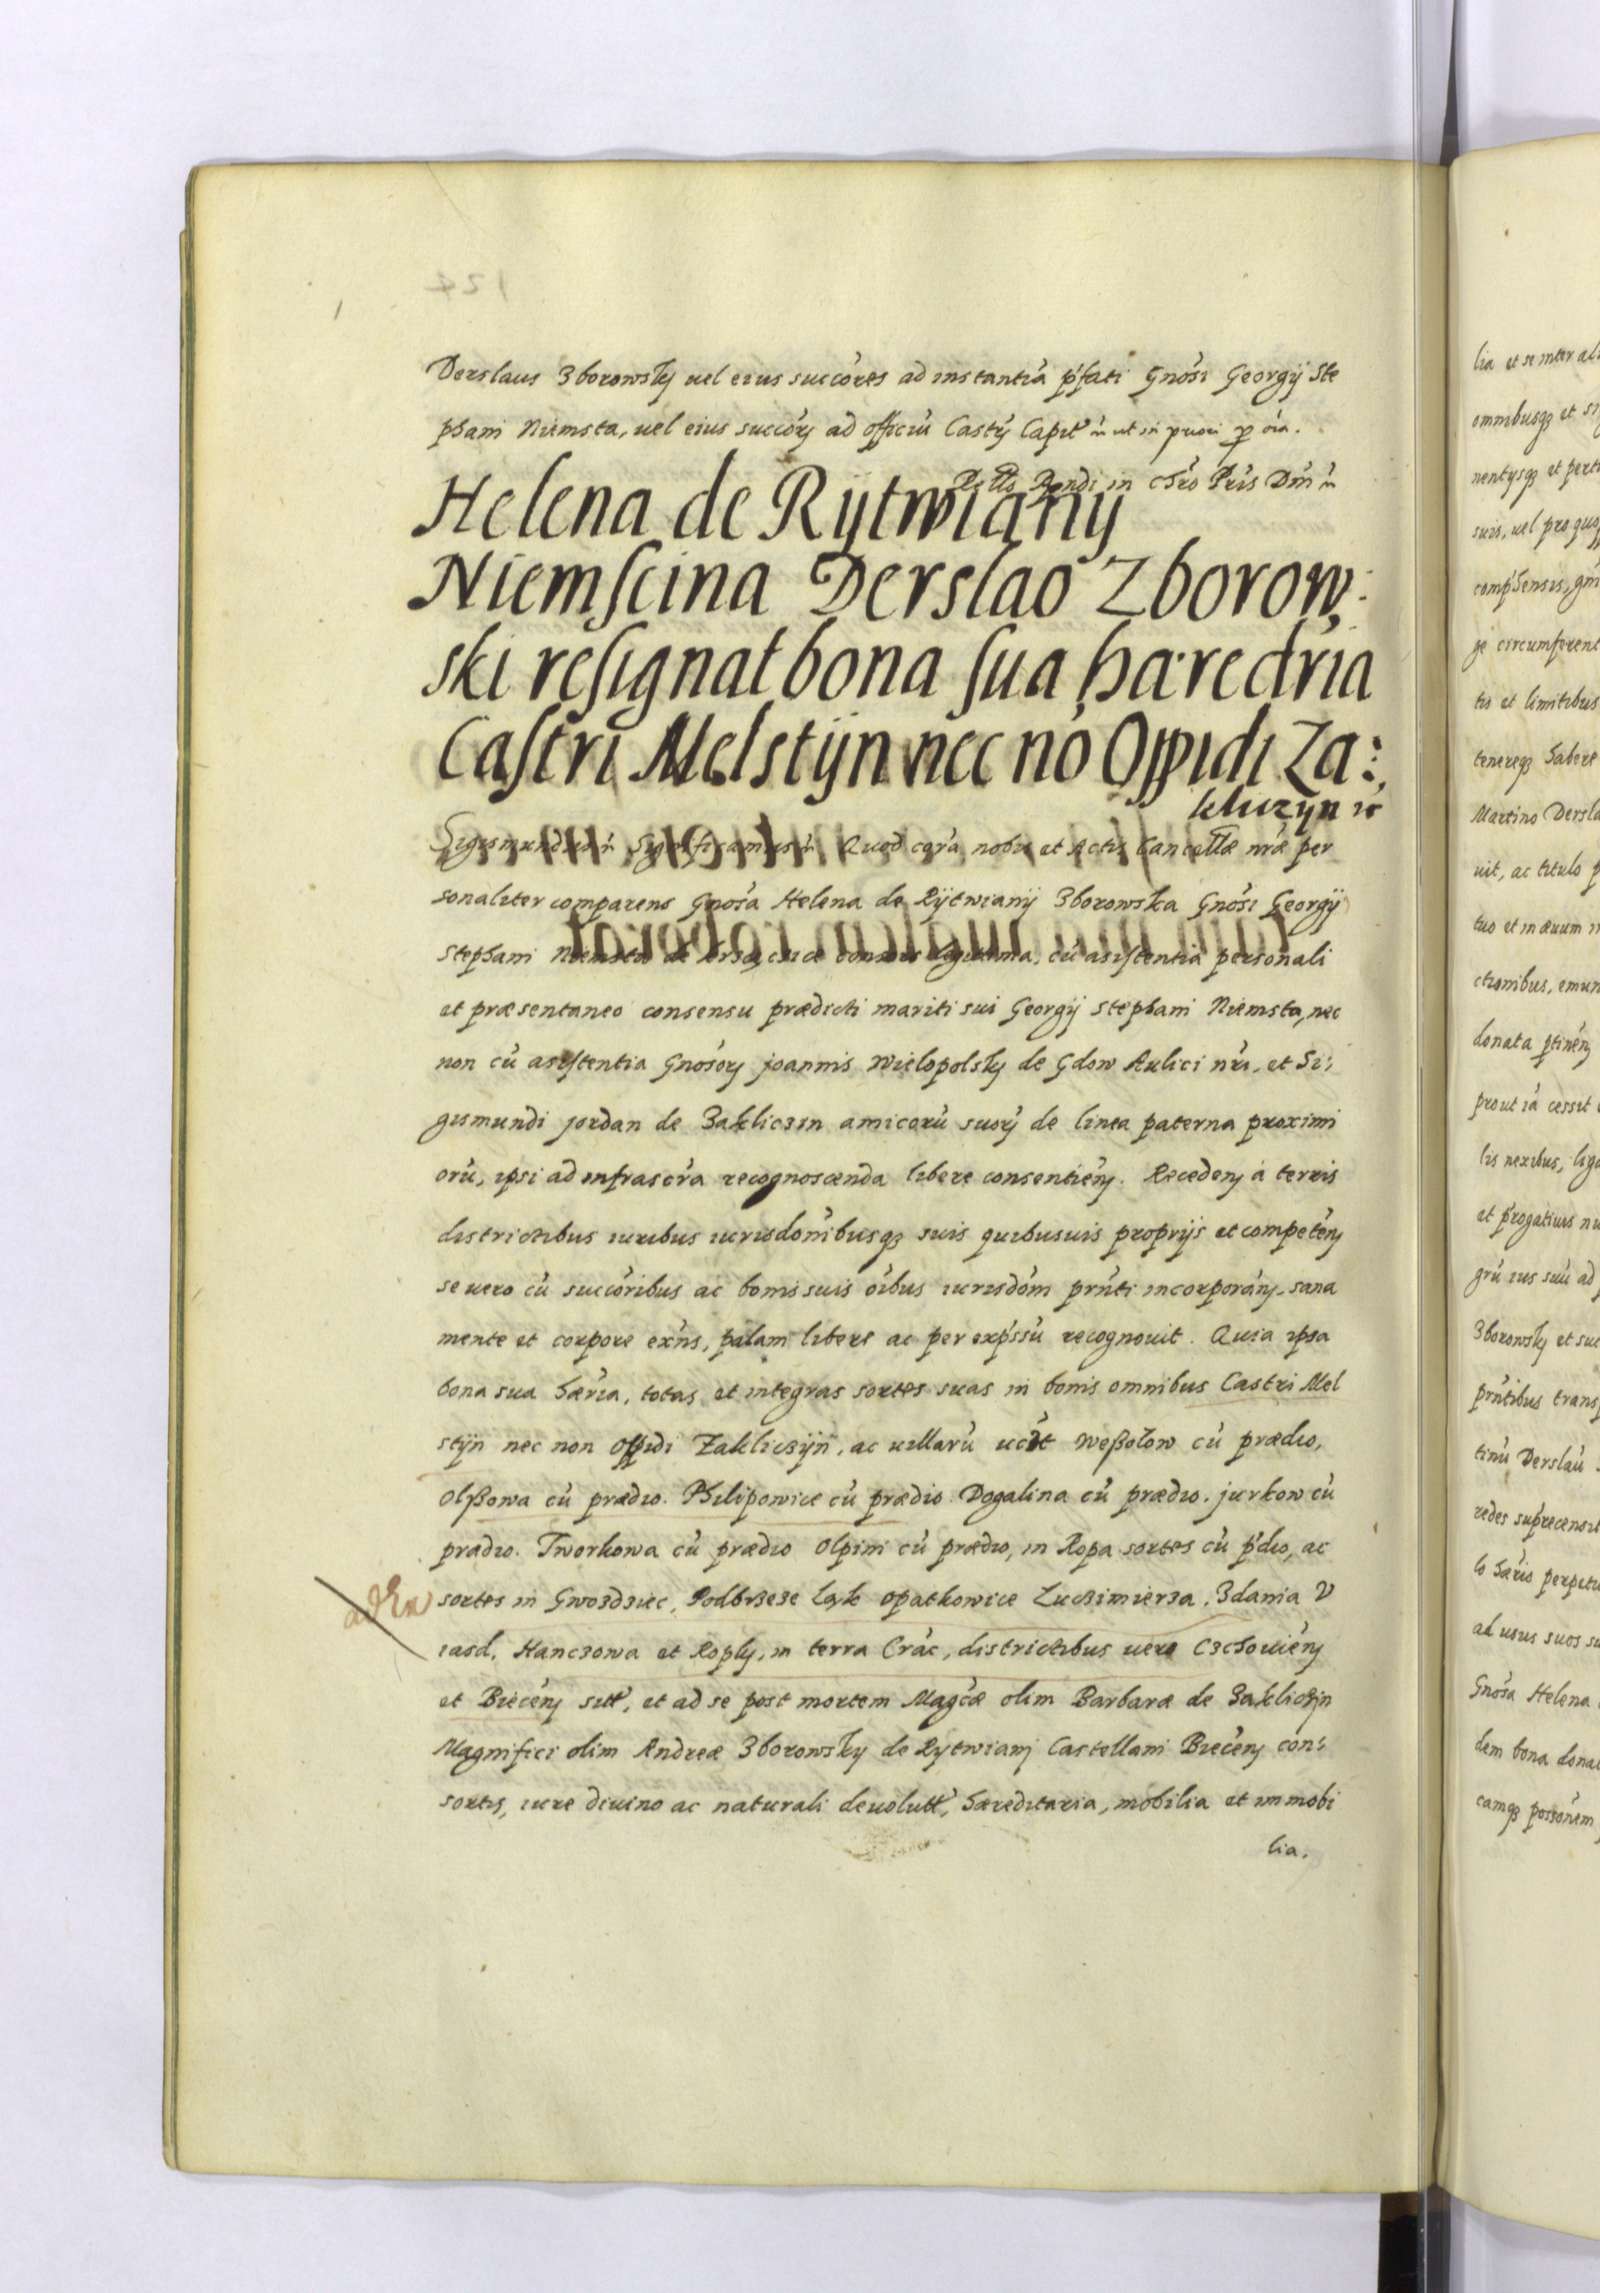 Derslaus Zborowsky uel eius succores ad instantia pfati Gnosi Georgij Ste
phani Niemsta, uel eius succory ad officiu Castr Capit ut in priori p oia.
in chro Pris Dni
Helena de Rÿtwianÿ
Niemscina Derslao Zborow,
ski resignat bona sua hæredria
Castri Melstÿn nec no Oppidi Za:,
kliczÿn
Sigismundus Significamus Quod cora nobis et Actis Cancellæ nræ per
sonaliter comparens Gnosa Helena de Rÿtwianÿ Zborowska Gnosi Georgÿ
Stephani Niemsta de consors legitima, cu asistentia personali
et præsentaneo consensu prædicti mariti sui Georgij Stephani Niemsta, nec
non cu asistentia Gnosory Joannis Wielopolsky de Gdow Aulici nri, et Si,
gismundi Jordan de Zakliczin amicoru suory de linea paterna proximi
oru, ipsi ad infrascra recognoscenda libere consentien. Recedens á terris
districtibus iuribus iurisdonibusq suis quibusuis proprijs et competen
se uero cu succoribus ac bonis suis oibus iurisdom prnti incorporan, sana
mente et corpore exns, palam libere ac per expssu recognouit. Quia ipsa
bona sua hæria, totas et integras sortes suas in bonis omnibus Castri Mel
stÿn nec non Oppidi Zakliczÿn, ac uillaru ucdt Weßolow cu prædio,
Olßowa cu prædio. Philipowice cu prædio Dogalina cu prædio. Jurkow cu
prædio. Tworkowa cu prædio Olpini cu prædio, in Ropa sortes cu pdio, ac
sortes in Gwozdziec, Podbrzeze Opatkowice Luczimierza, Zdania V
iasd, Hanczowa et Roply, in terra Crac, districtibus uero Czchouien
et Biecen sitt, et ad se post mortem Magcæ olim Barbaræ de Zakliczÿn
Magnifici olim Andreæ Zborowsky de Rytwiani Castellani Biecen con,
sortis, iure diuino ac naturali deuolutt, hæreditaria, mobilia et immobi
lia.
lia et se inter ali
omnibusq et
nentysq et perti
suis, uel pro
comphensis,
circumferent
tis et limitibus
tenereq habere
Martino Dersla
uit, ac titulo p
tuo et in æuum
ctionibus, emun
donata
prout ia cessit
lis nexibus, liga
et progatiuis
gru ius suu ad
Zborowsky et suc
prntibus trans
tinu Derslau
redes
lo hærio perpetu
ad usus suos su
Gnosa Helena
dem bona dona
camq possonem